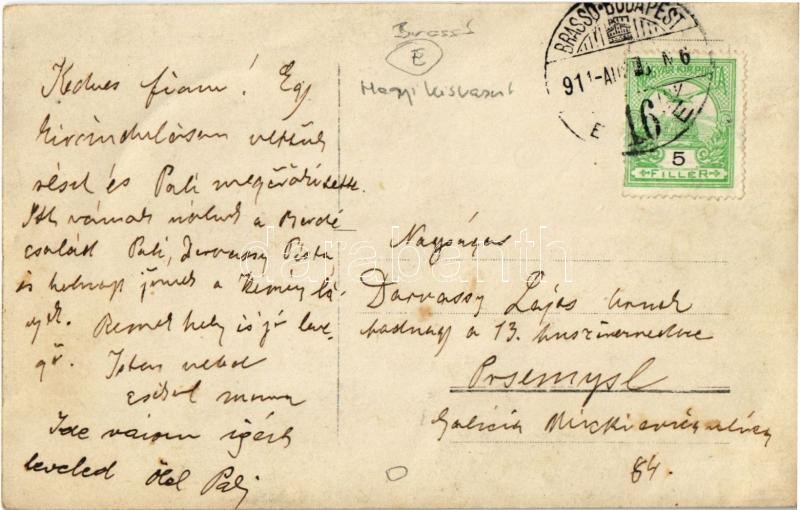 Brassó
E
Nagy kaszárnyá
BRASSÓ-BUDAPEST
911
N 6
E
16
MAGYAR KIR. POSTA
5
FILLÉR
Kedves fiam! Egy
kirándulásan vettünk
részt és Pali megörökített.
Itt vannak nálunk a
család Pali, Darvassy Pista
és holnap jönnek a Kemény lá-
nyok. Remek hely és jó leve-
gő. Isten veled
csókol mama
Ide várom ígért
leveled Ölel Pali
Nagyságos
Darvassy Lajos úrnak
hadnagy a 13. huszárezredbe
Przemysl
Galicia Mickiewicz utca
84.
darabanth